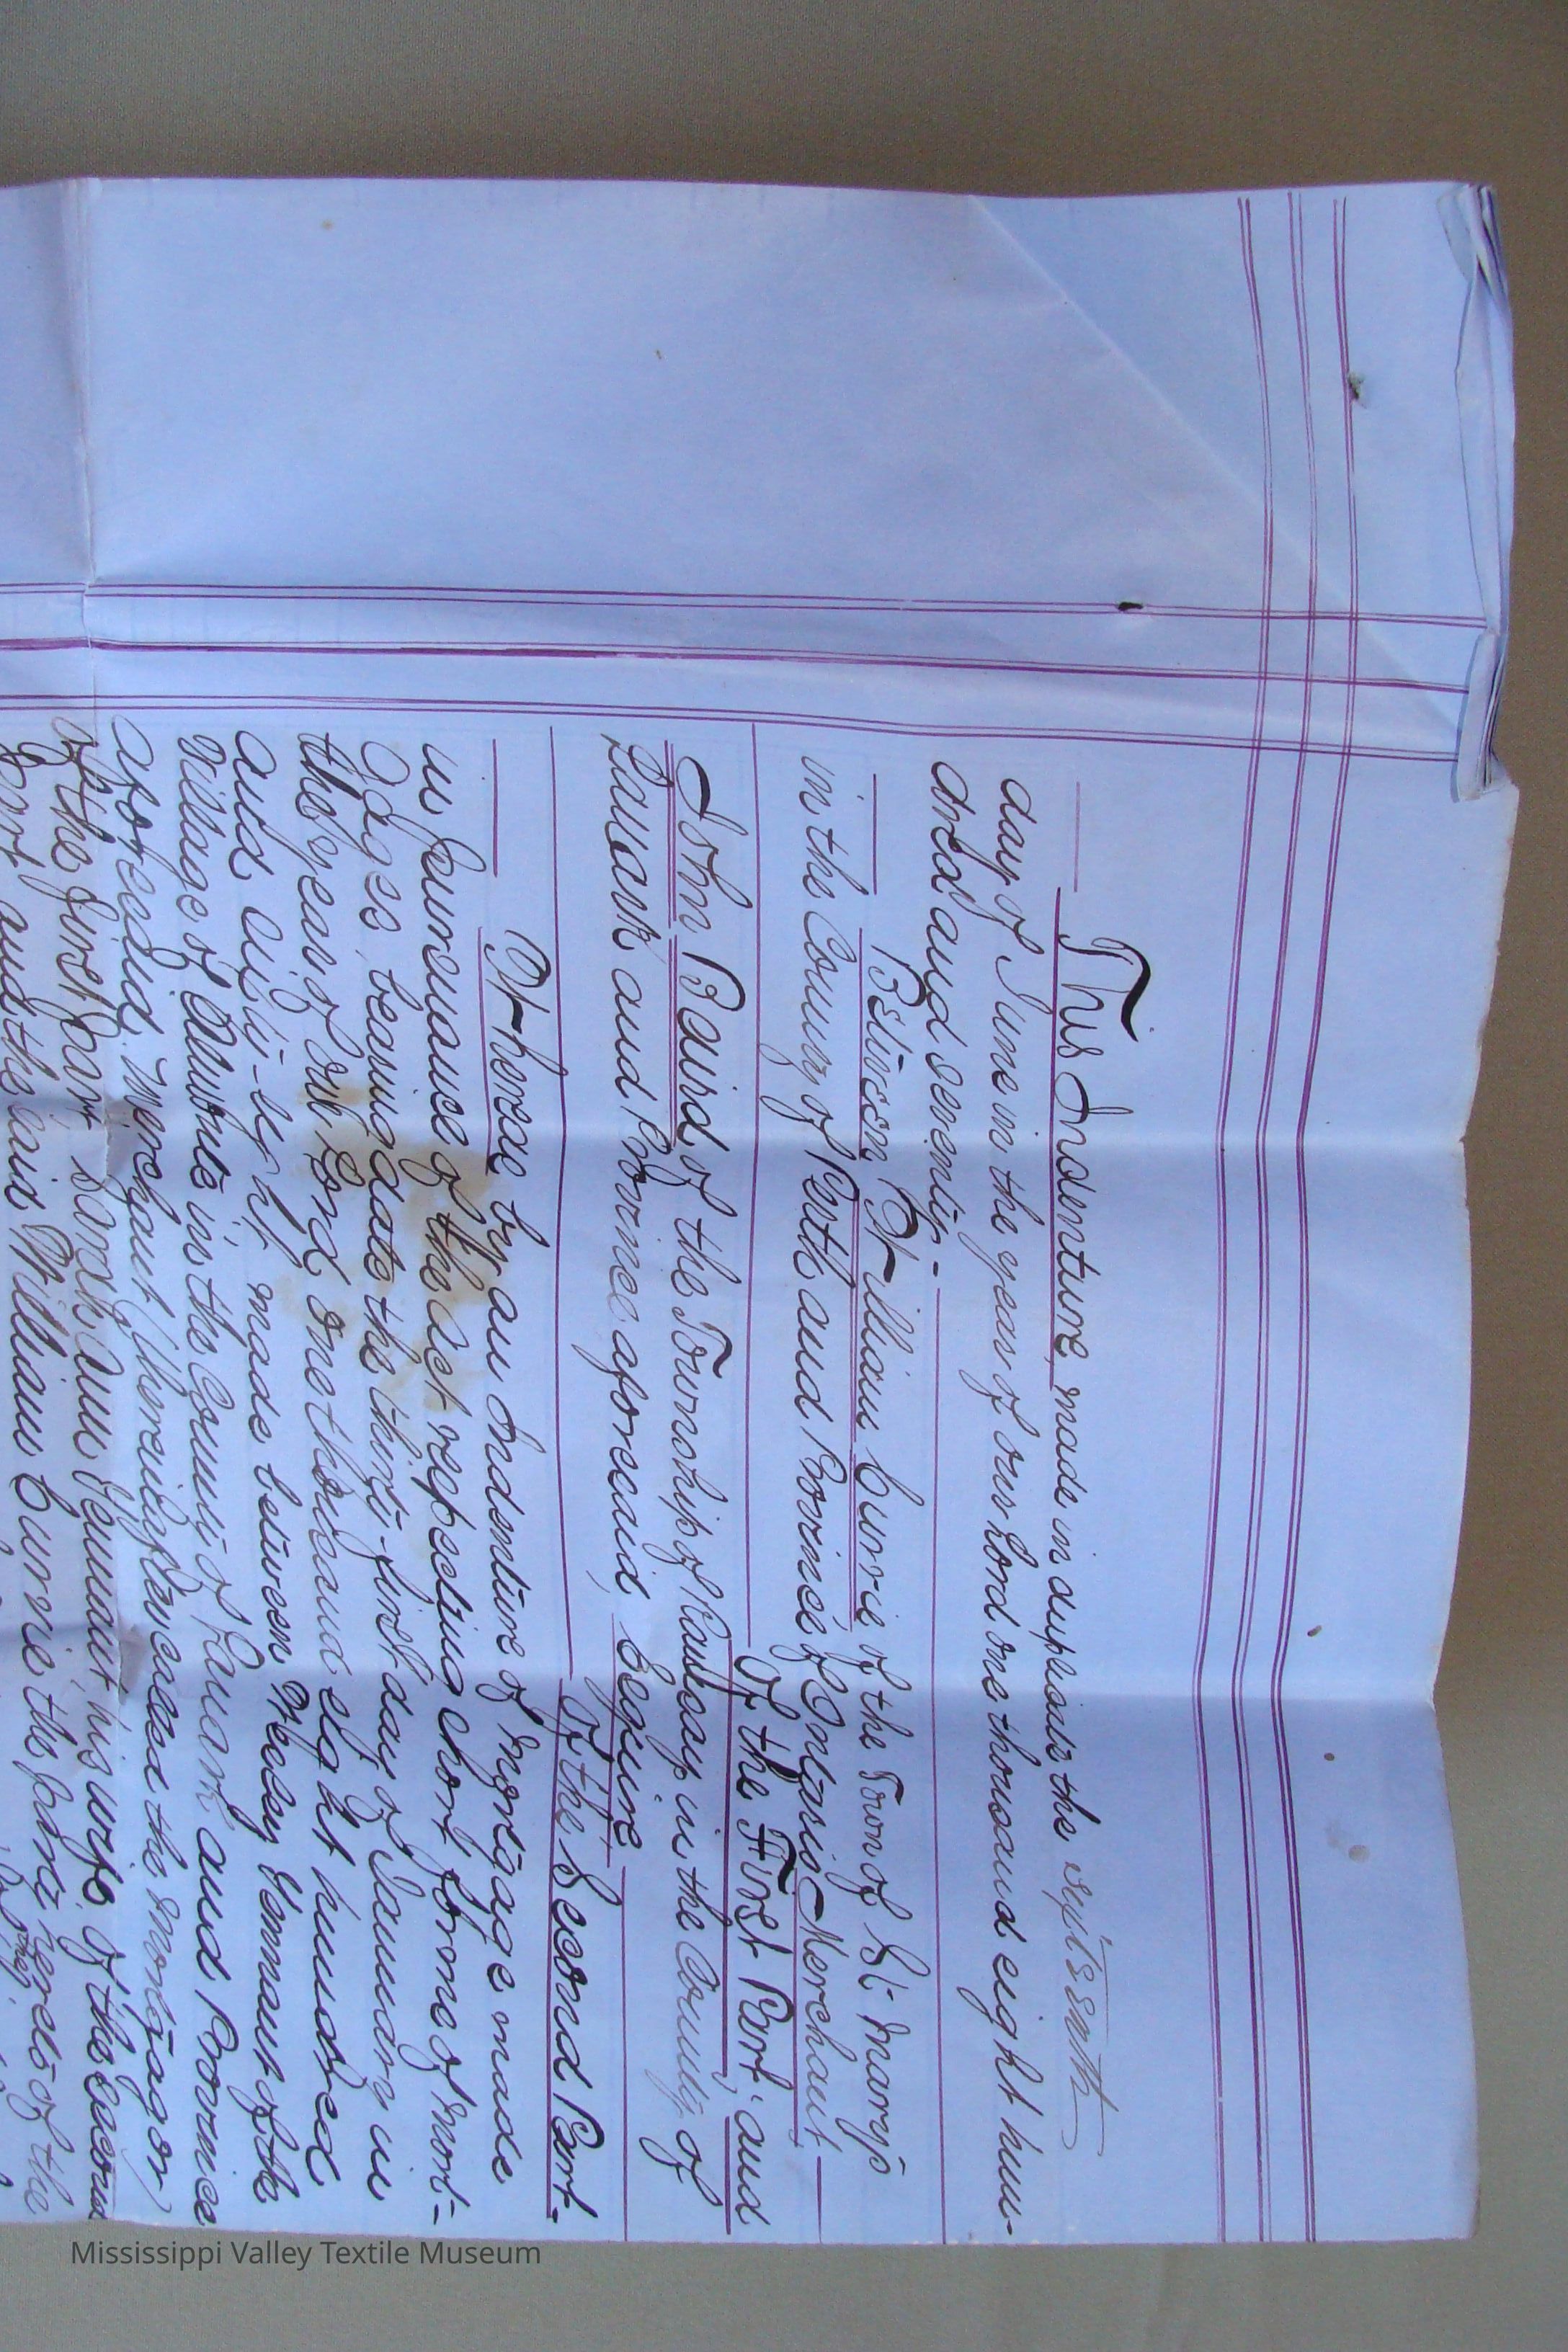 This Indenture, made in duplicate the eighteenth
day of June in the year of our Lord one thousand eight hun-
dred and seventy-
Between William Currie of the Town of St. Mary's
in the County of Perth and Province of Ontario Merchant
Of the First Part; and
John Baird of the Township of in the County of
Lanark and Province aforesaid, Esquire
Of the Second Part.
Whereas by an Indenture of Mortgage made
in pursuance of the act respecting short forms of Mort-
gages, bearing date the thirty-first day of January in
the year of our Lord one thousand eight hundred
and sixty-eight made between Wesley Yemant of the
Village of Almonte in the County of Lanark and Province
aforesaid, Merchant thereinafter called the Mortgagor
of the first part Sarah Ann Yemant, his wife, of the second
part and the said William Currie the of the
Mississippi Valley Textile Museum